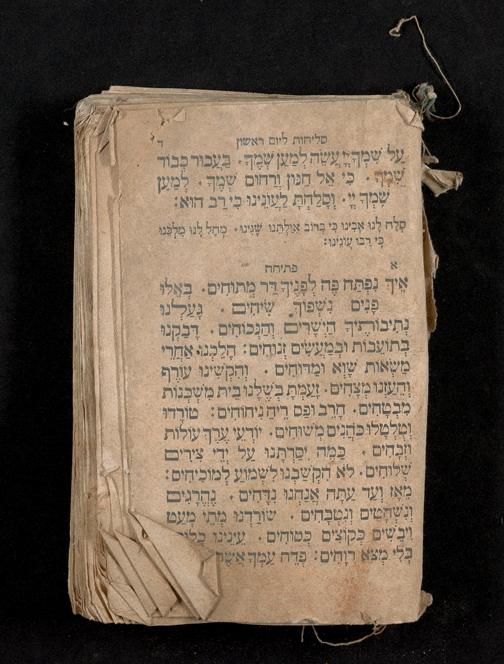 סליחות ליום ראשון ד
עַל שִׁמְךָ יְיָ עֲשֵׂה לְמַעַן שְׁמֶךָ. בַּעֲבוּר כְּבוֹד
שִׁמְךָ. כִּי אֵל חַנּוּן וְרַחוּם שְׁמֶךָ. לְמַעַן
שִׁמְךָ יְיָ. וְסָלַחְתָּ לַעֲוֹנֵינוּ כִּי רַב הוּא:
סְלַח לָנוּ אָבִינוּ כִּי בְּרוֹב אִוַּלְתֵּנוּ שָׁגִינוּ. מְחַל לָנוּ מַלְכֵּנוּ
כִּי רַבּוּ עֲוֹנֵינוּ:
א פתיחה
אֵיךְ נִפְתַּח פֶּה לְפָנֶיךָ דַּר מְתוּחִים. בְּאֵלּוּ
פָנִים נִשְׁפּוֹךְ שִׂיחִים. גָּעַלְנוּ
נְתִיבוֹתֶיךָ הַיְשָׁרִים וְהַנְּכוֹחִים. דָּבַקְנוּ
בְּתוֹעֵבוֹת וּבְמַעֲשִׂים זְנוּחִים: הָלַכְנוּ אַחֲרֵי
מַשְׂאוֹת שָׁוְא וּמַדּוּחִים. וְהִקְשִׁינוּ עוֹרֶף
וְהֵעַזְנוּ מְצָחִים. זָעַמְתָּ בְּשֶׁלָּנוּ בֵּית מִשְׁכְּנוֹת
מִבְטָחִים. חָרֵב וּפַס רֵיחַ נִיחוֹחִים: טוֹרְדוּ
וְטֻלְטְלוּ כֹּהֲנִים מְשׁוּחִים. יוֹדְעֵי עֵרֶךְ עוֹלוֹת
וּזְבָחִים. כַּמָּה יִסַּרְתָּנוּ עַל יְדֵי צִירִים
שְׁלוּחִים. לֹא הִקְשַׁבְנוּ לִשְׁמוֹעַ לַמּוֹכִיחִים:
מֵאָז וְעַד עַתָּה אֲנַחְנוּ נִדָּחִים. נֶהֱרָגִים
וְנִשְׁחָטִים וְנִטְבָּחִים שׂוֹרַדְנוּ מְתֵי מְעָט
וִיבֵשִׁים כְּקוֹצִים כְּסוּחִים. עֵינֵינוּ
בְּלִי מְצֹא רְוָחִים: פְּדֵה עַמְּךָ